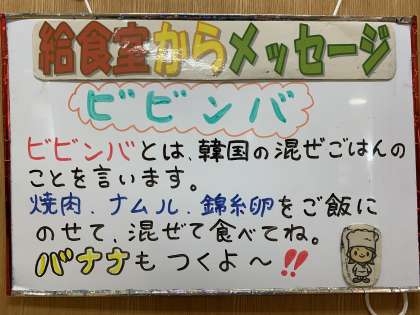 給食室からメッセージ
ビビンバ
ビビンバとは、韓国の混ぜごはんの
ことを言います。
焼肉、ナムル、錦糸卵をご飯に
のせて、混ぜて食べてね。
バナナもつくよ〜!!